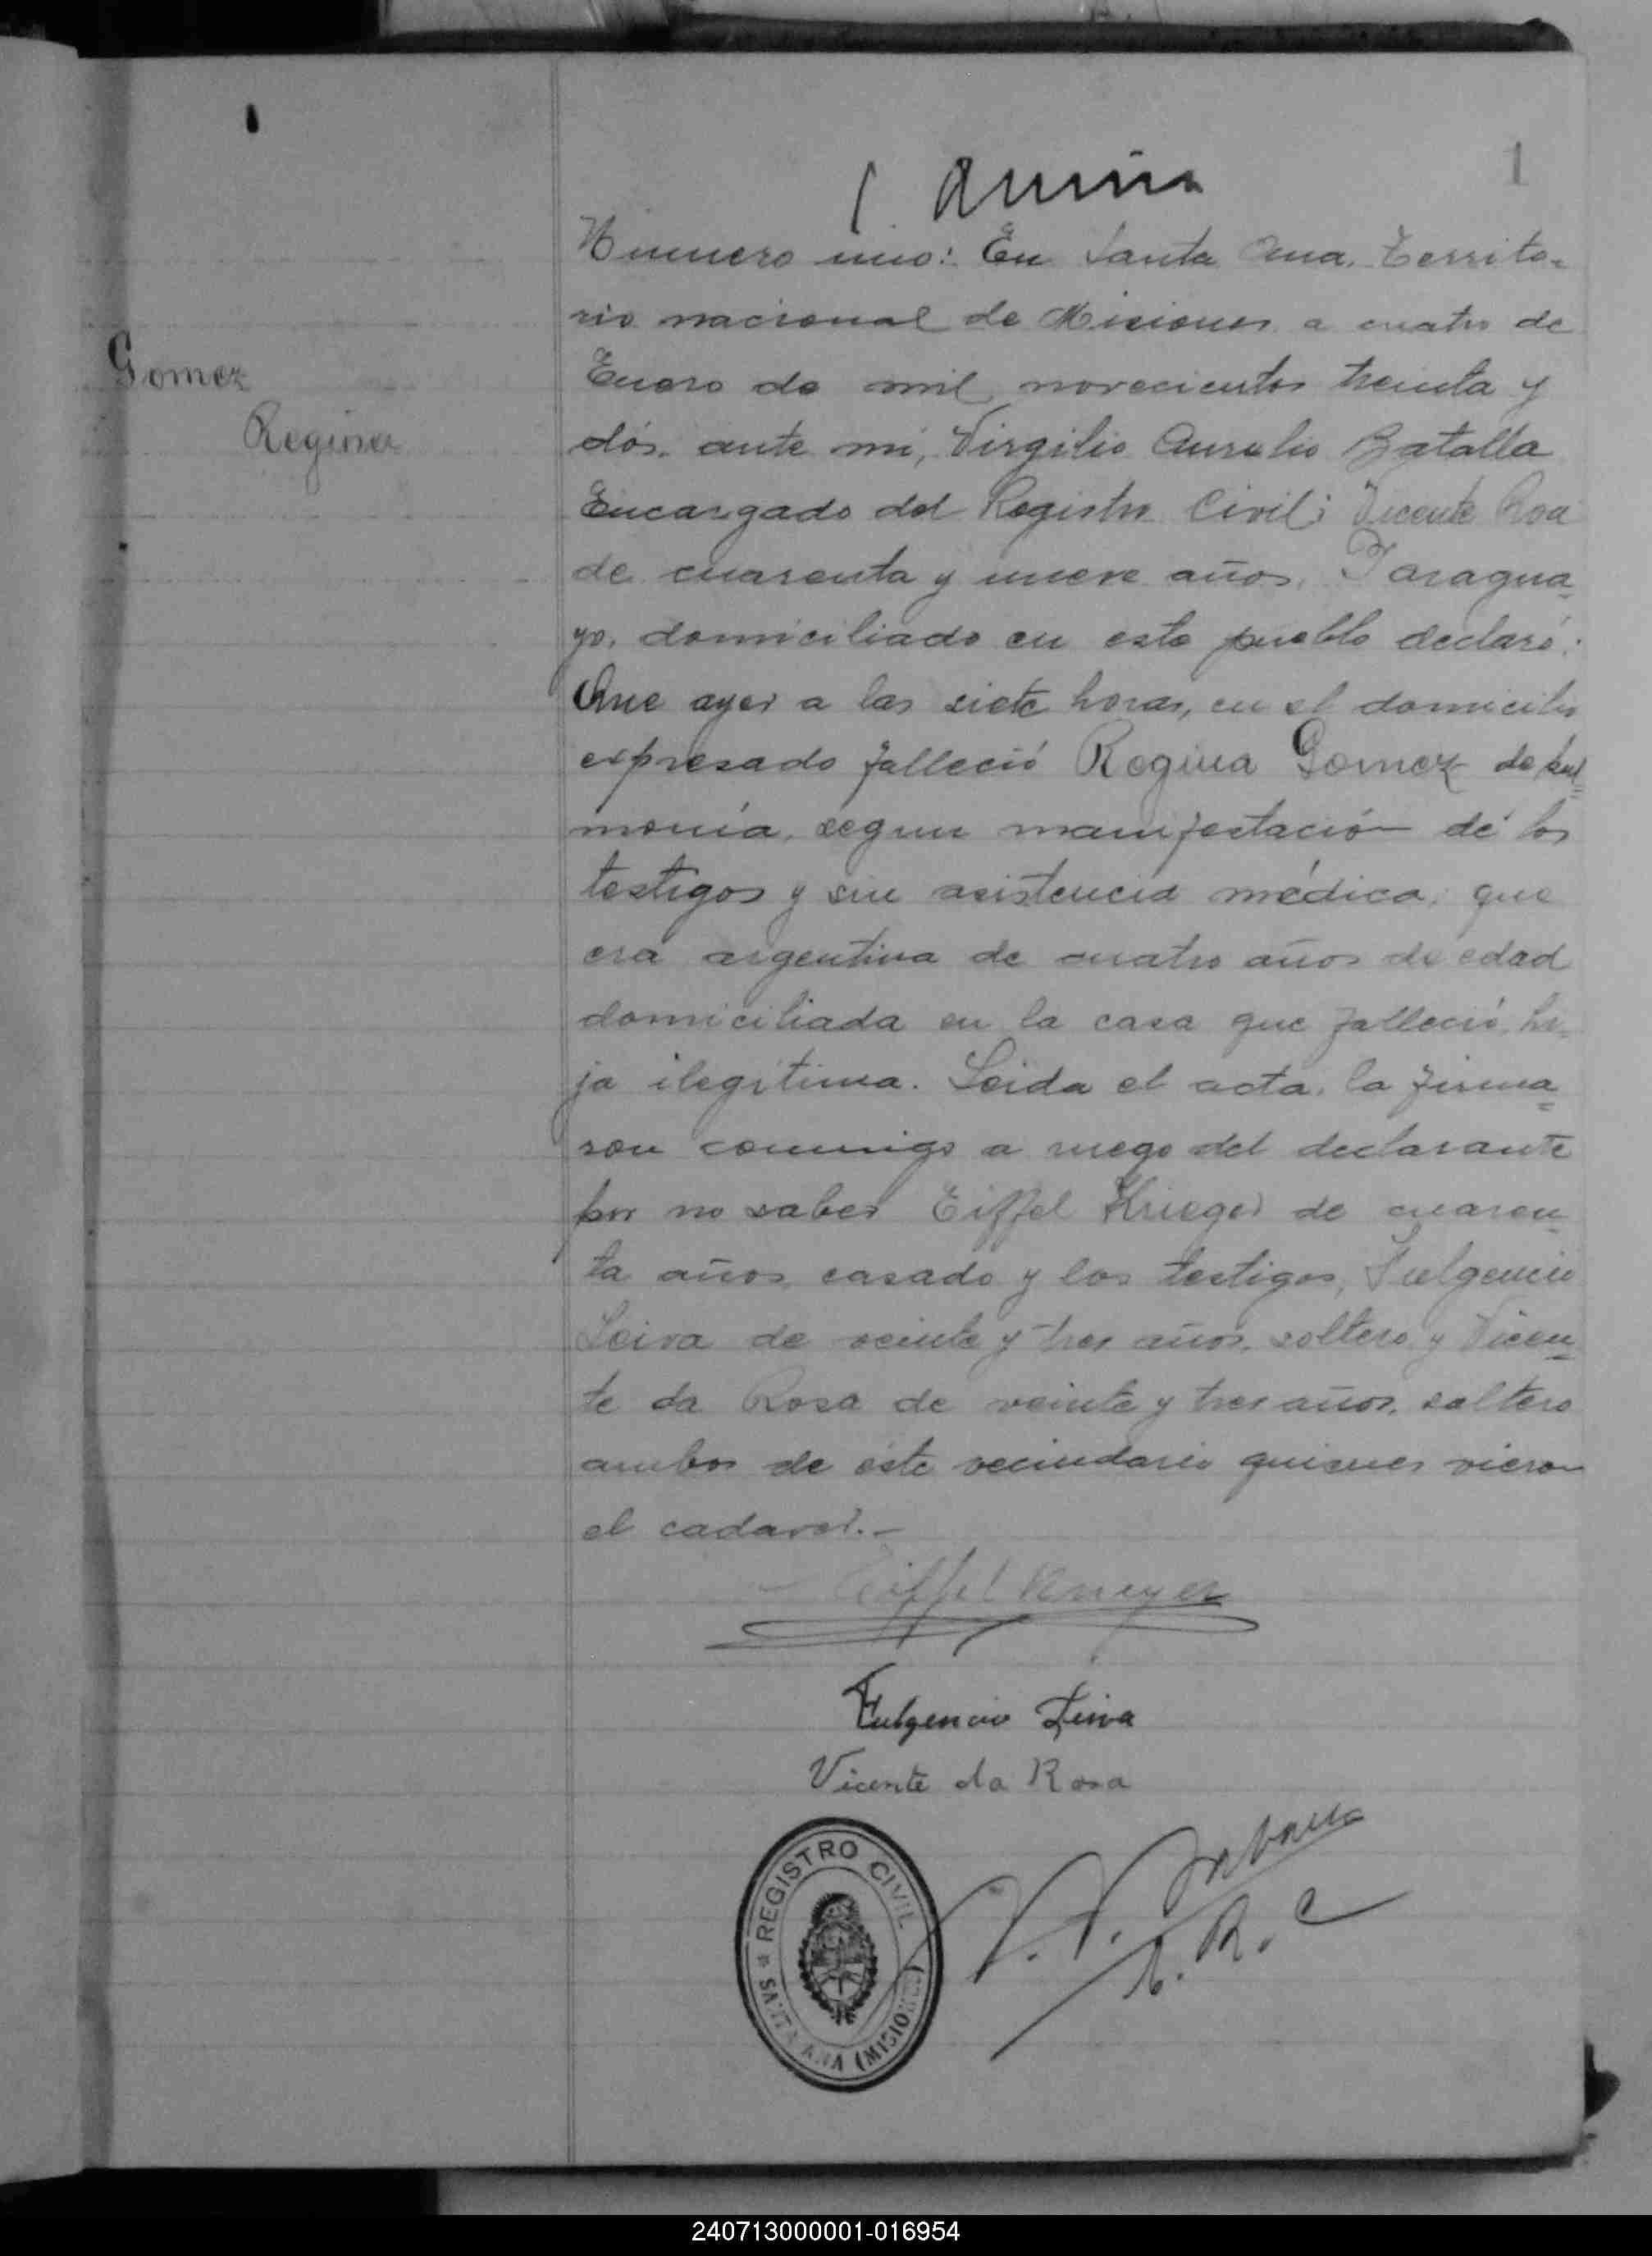 1
Gomez
Regina
Numero uno: En Santa Ana, Territo-
rio nacional de Misiones a cuatro de
Enero de mil novecientos treinta y
dós. ante mi, Virgilio Aurelio Batalla
Encargado del Registro Civil; Vicente Roa
de cuarenta y nueve años, Paragua-
yo, domiciliado en este pueblo declaró:
Que ayer a las siete horas, en el domicilio
expresado falleció Regina Gomez de pul=
monía, segun manifestación de los
testigos y sin asistencia médica, que
era argentina de cuatro años de edad
domiciliada en la casa que falleció, hi-
ja ilegítima. Leida el acta, la firma=
ron conmigo a ruego del declarante
por no saber Eiffel Krieger de cuaren-
ta años, casado y los testigos, Fulgencio
Leiva de veinte y tres años, soltero y Vicen=
te da Rosa de veinte y tres años, soltero
ambos de este vecindario quienes vieron
el cadaver.-
Eiffel Krieger
Fulgencio Leiva
Vicente da Rosa
REGISTRO CIVIL
SANTA ANA (MISIONES)
E. R. C
240713000001-016954